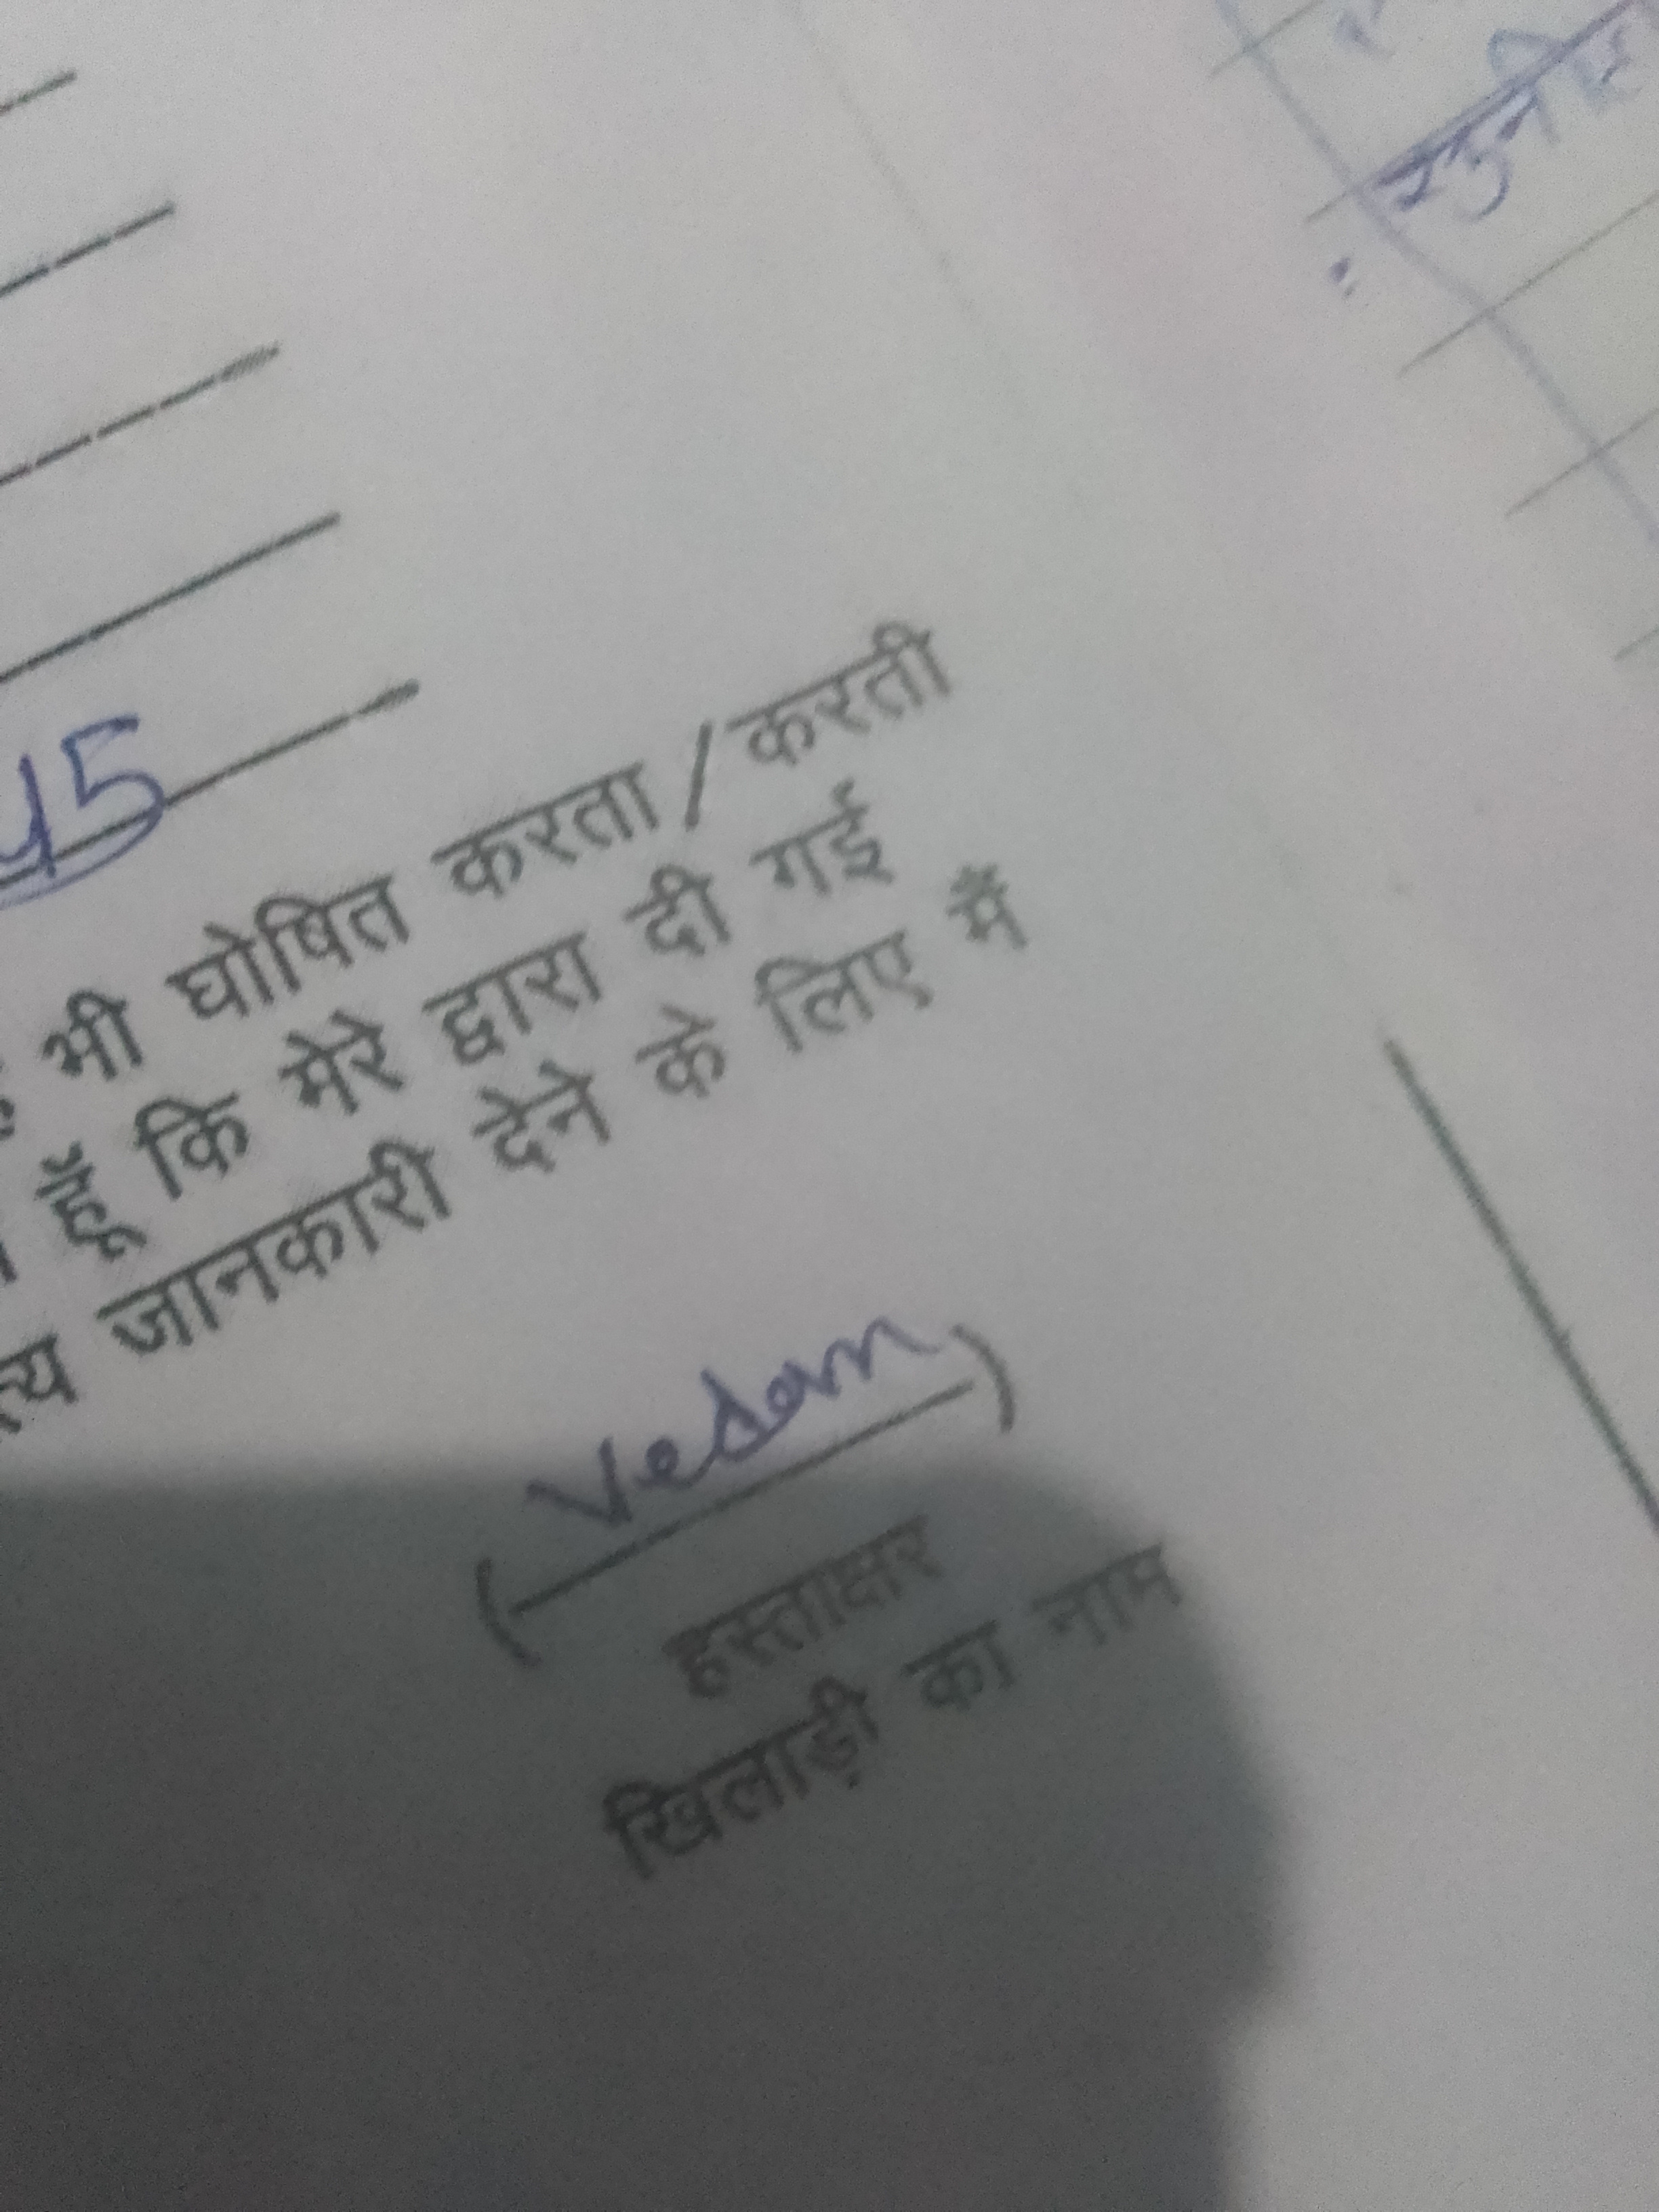 45
भी घोषित करता/करती
हूँ कि मेरे द्वारा दी गई
जानकारी देने के लिए मैं
(Vedam)
हस्ताक्षर
खिलाड़ी का नाम